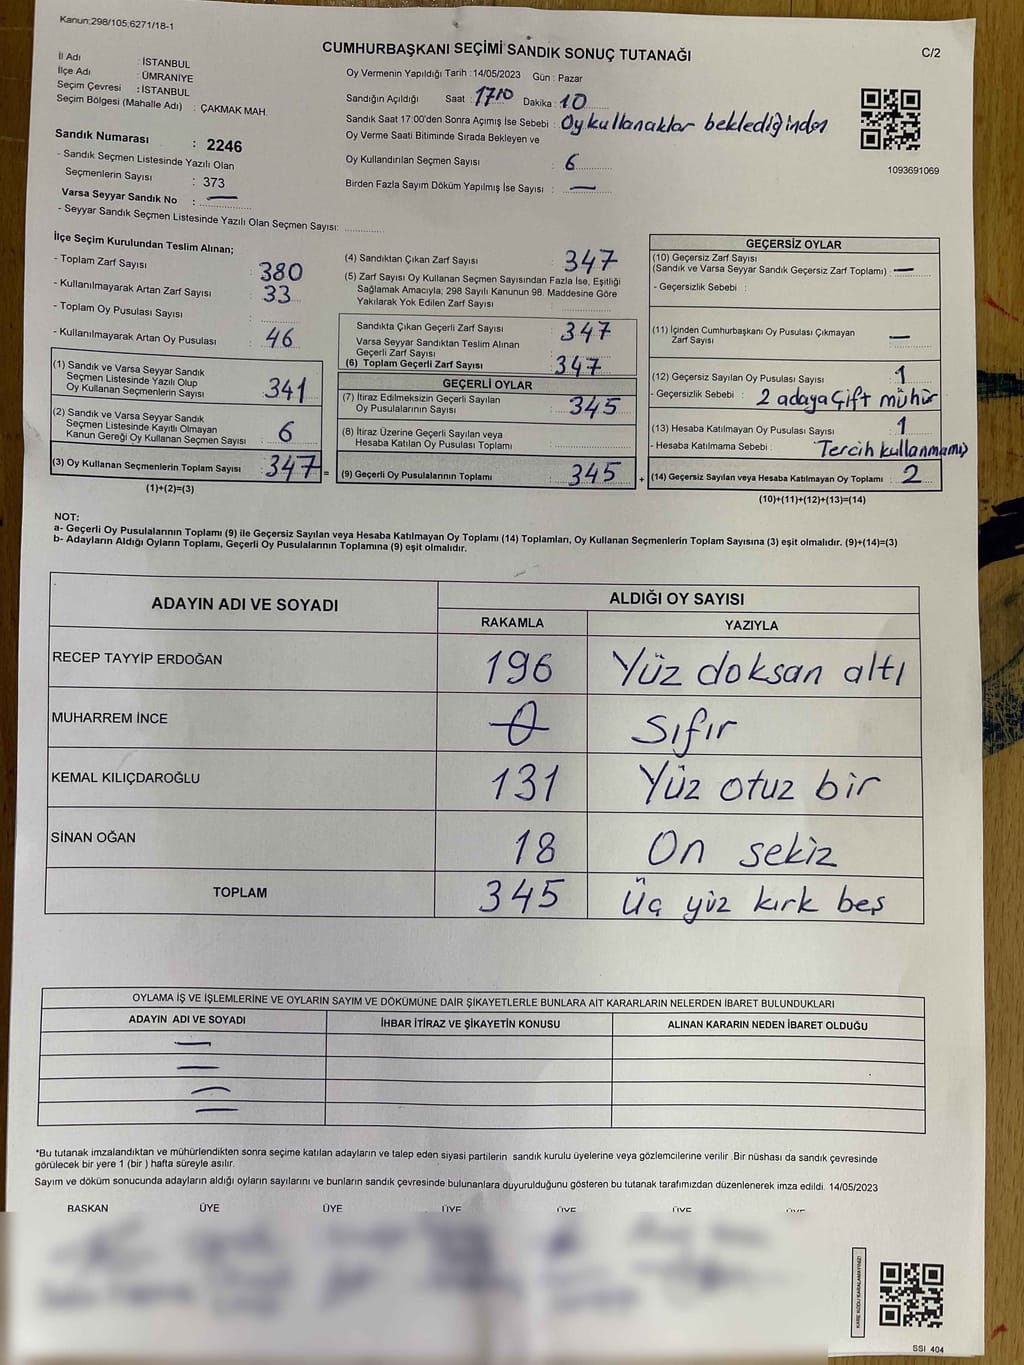 Kanun:298/105;6271/18-1
CUMHURBAŞKANI SEÇİMİ SANDIK SONUÇ TUTANAĞI
C/2
İl Adı : İSTANBUL
İlçe Adı : ÜMRANİYE
Seçim Çevresi : İSTANBUL
Seçim Bölgesi (Mahalle Adı) : ÇAKMAK MAH.
Sandık Numarası : 2246
- Sandık Seçmen Listesinde Yazılı Olan
Seçmenlerin Sayısı : 373
Varsa Seyyar Sandık No : —
- Seyyar Sandık Seçmen Listesinde Yazılı Olan Seçmen Sayısı: ............
Oy Vermenin Yapıldığı Tarih : 14/05/2023 Gün : Pazar
Sandığın Açıldığı Saat : 1710 Dakika : 10
Sandık Saat 17:00'den Sonra Açımış İse Sebebi : Oy kullanaklar beklediğinden
Oy Verme Saati Bitiminde Sırada Bekleyen ve
Oy Kullandırılan Seçmen Sayısı : 6
Birden Fazla Sayım Döküm Yapılmış İse Sayısı : —
1093691069
İlçe Seçim Kurulundan Teslim Alınan;
- Toplam Zarf Sayısı : 380
- Kullanılmayarak Artan Zarf Sayısı : 33
- Toplam Oy Pusulası Sayısı :
- Kullanılmayarak Artan Oy Pusulası : 46
(1) Sandık ve Varsa Seyyar Sandık
Seçmen Listesinde Yazılı Olup
Oy Kullanan Seçmenlerin Sayısı : 341
(2) Sandık ve Varsa Seyyar Sandık
Seçmen Listesinde Kayıtlı Olmayan
Kanun Gereği Oy Kullanan Seçmen Sayısı : 6
(3) Oy Kullanan Seçmenlerin Toplam Sayısı : 347 =
(1)+(2)=(3)
(4) Sandıktan Çıkan Zarf Sayısı : 347
(5) Zarf Sayısı Oy Kullanan Seçmen Sayısından Fazla İse, Eşitliği
Sağlamak Amacıyla; 298 Sayılı Kanunun 98. Maddesine Göre
Yakılarak Yok Edilen Zarf Sayısı :
Sandıkta Çıkan Geçerli Zarf Sayısı : 347
Varsa Seyyar Sandıktan Teslim Alınan
Geçerli Zarf Sayısı :
(6) Toplam Geçerli Zarf Sayısı : 347
GEÇERLİ OYLAR
(7) İtiraz Edilmeksizin Geçerli Sayılan
Oy Pusulalarının Sayısı : 345
(8) İtiraz Üzerine Geçerli Sayılan veya
Hesaba Katılan Oy Pusulası Toplamı :
(9) Geçerli Oy Pusulalarının Toplamı : 345 +
GEÇERSİZ OYLAR
(10) Geçersiz Zarf Sayısı
(Sandık ve Varsa Seyyar Sandık Geçersiz Zarf Toplamı) : —
- Geçersizlik Sebebi :
(11) İçinden Cumhurbaşkanı Oy Pusulası Çıkmayan
Zarf Sayısı : —
(12) Geçersiz Sayılan Oy Pusulası Sayısı : 1
- Geçersizlik Sebebi : 2 adaya Çift mühür
(13) Hesaba Katılmayan Oy Pusulası Sayısı : 1
- Hesaba Katılmama Sebebi : Tercih kullanmamış
(14) Geçersiz Sayılan veya Hesaba Katılmayan Oy Toplamı : 2
(10)+(11)+(12)+(13)=(14)
NOT:
a- Geçerli Oy Pusulalarının Toplamı (9) ile Geçersiz Sayılan veya Hesaba Katılmayan Oy Toplamı (14) Toplamları, Oy Kullanan Seçmenlerin Toplam Sayısına (3) eşit olmalıdır. (9)+(14)=(3)
b- Adayların Aldığı Oyların Toplamı, Geçerli Oy Pusulalarının Toplamına (9) eşit olmalıdır.
ADAYIN ADI VE SOYADI
ALDIĞI OY SAYISI
RAKAMLA YAZIYLA
RECEP TAYYİP ERDOĞAN 196 Yüz doksan altı
MUHARREM İNCE 0 Sıfır
KEMAL KILIÇDAROĞLU 131 Yüz otuz bir
SİNAN OĞAN 18 On sekiz
TOPLAM 345 Üç yüz kırk beş
OYLAMA İŞ VE İŞLEMLERİNE VE OYLARIN SAYIM VE DÖKÜMÜNE DAİR ŞİKAYETLERLE BUNLARA AİT KARARLARIN NELERDEN İBARET BULUNDUKLARI
ADAYIN ADI VE SOYADI İHBAR İTİRAZ VE ŞİKAYETİN KONUSU ALINAN KARARIN NEDEN İBARET OLDUĞU
—
—
—
—
*Bu tutanak imzalandıktan ve mühürlendikten sonra seçime katılan adayların ve talep eden siyasi partilerin sandık kurulu üyelerine veya gözlemcilerine verilir .Bir nüshası da sandık çevresinde
görülecek bir yere 1 (bir ) hafta süreyle asılır.
Sayım ve döküm sonucunda adayların aldığı oyların sayılarını ve bunların sandık çevresinde bulunanlara duyurulduğunu gösteren bu tutanak tarafımızdan düzenlenerek imza edildi. 14/05/2023
BAŞKAN ÜYE ÜYE ÜYE ÜYE ÜYE ÜYE
KARE KODU KARALAMAYINIZ!
SSI 404